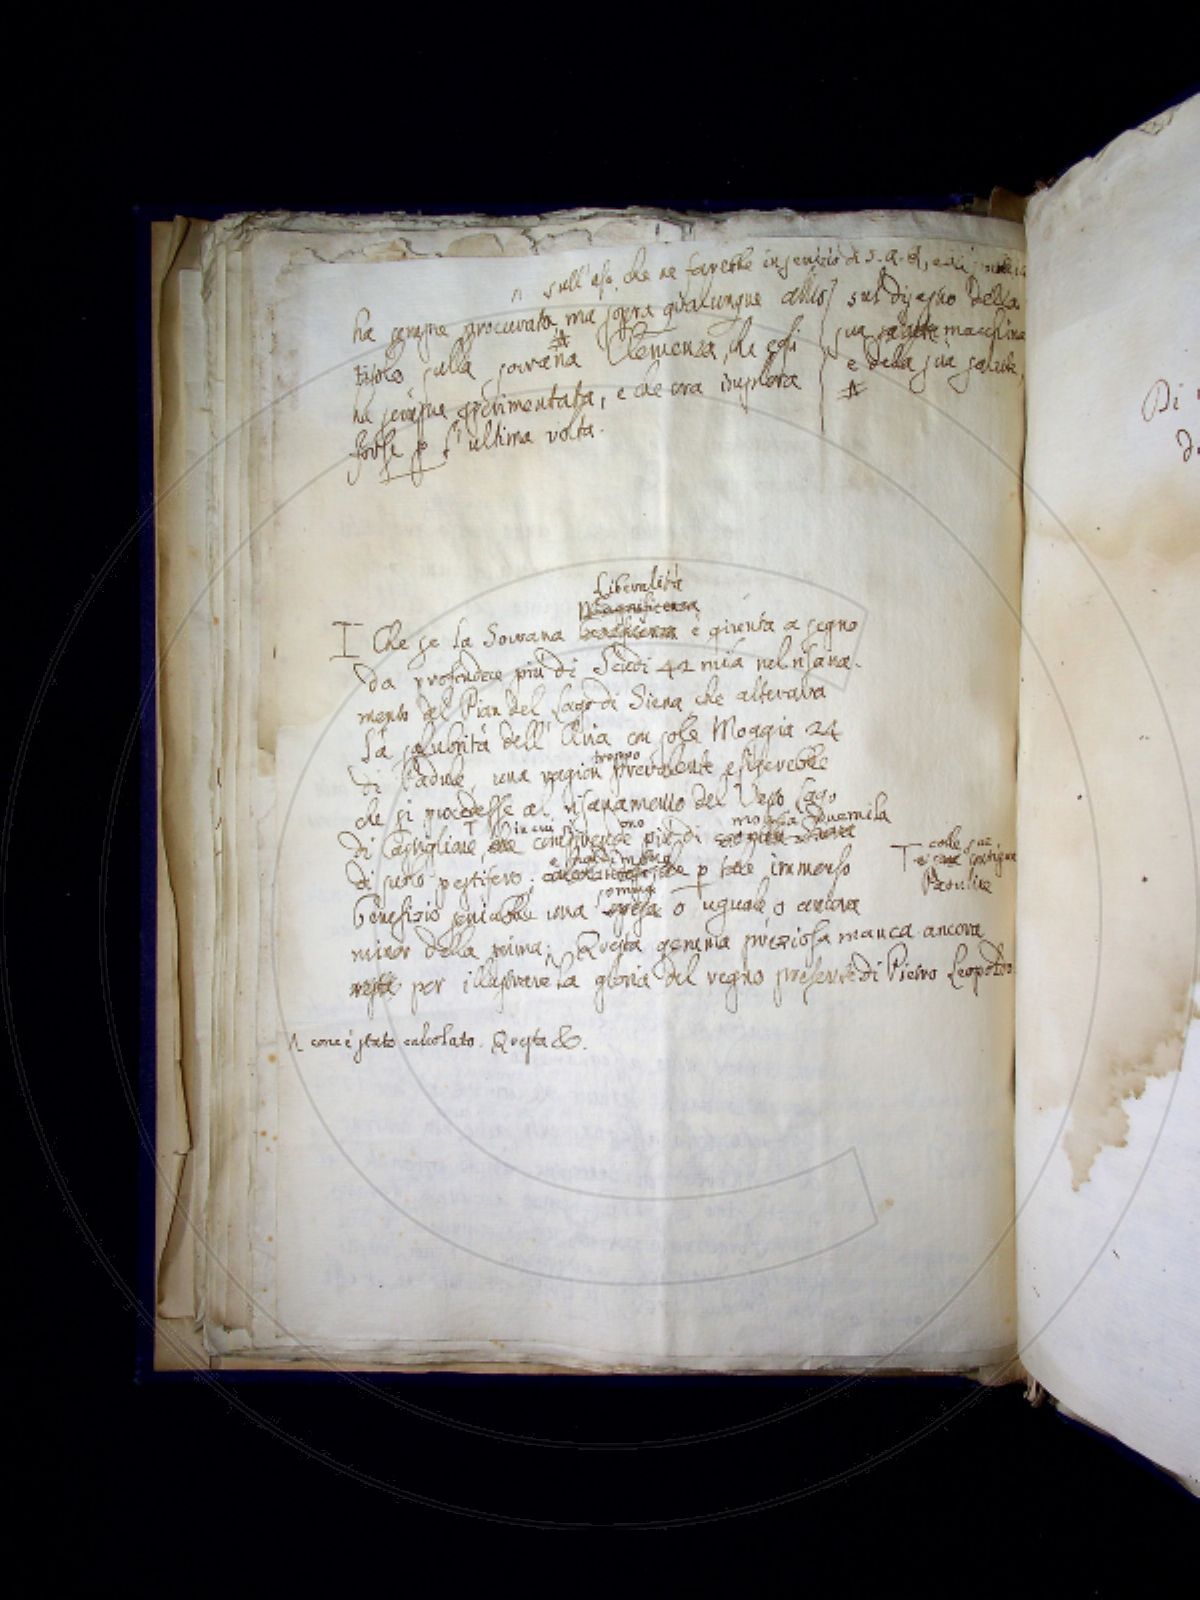 sull'uso, che ne farebbe in servizio di S. A. R., e di
ha sempre procurata, ma sopra qualunque altro
titolo sulla sovrana Clemenza, che egli
ha sempre sperimentata, e che ora implora
forse p l'ultima volta.
sul disegno della
sua macchina
e della sua salute,
Liberalità
Magnificenza
I Che se la Sovrana è giunta a segno
da profondere più di Scudi 42 mila nel risana-
mento del Pian del Lago di Siena, che alterava
la salubrità dell'Aria con sole Moggia 24
troppo
di Padule, una ragion prevalente esigerebbe
che si procedesse al risanamento del Lago
in cui si ono moggia Duemila
di Castiglione, più di
di suolo pestifero. che p tale immenso
somma
benefizio una spesa o uguale o ancora
minor della prima; Questa gemma preziosa manca ancora
resta per illustrare la gloria del regno presente di Pietro Leopoldo
T colle sue
contigue
Paduline
come è stato calcolato. Questa &.
Di